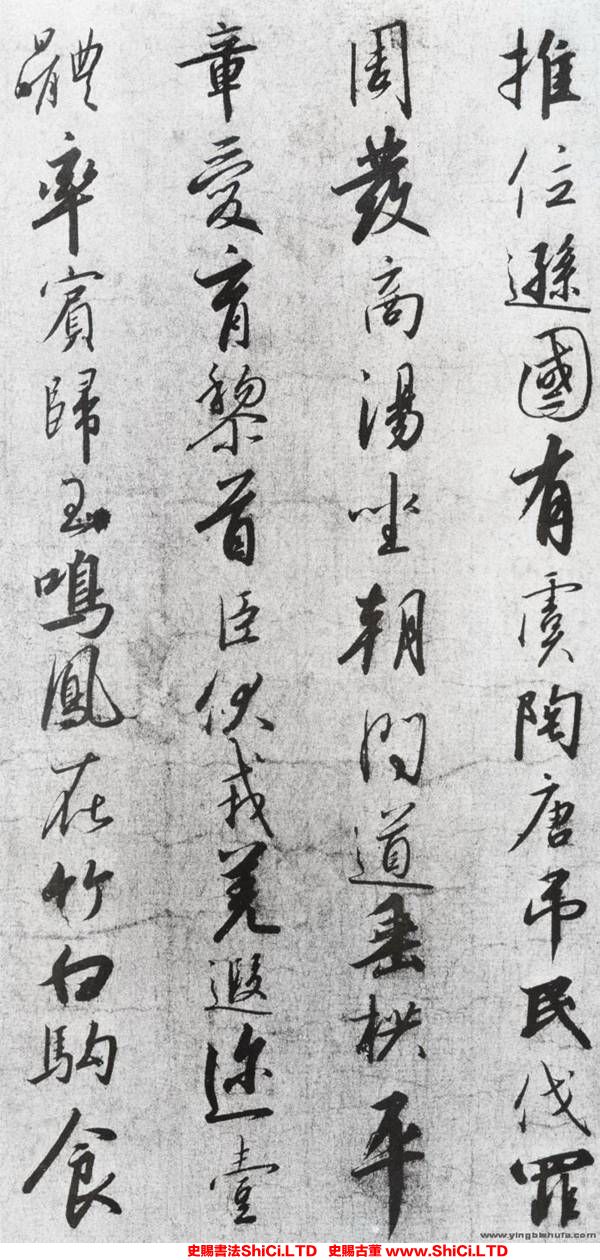 推位遜國有虞陶唐吊民伐罪
周發商湯坐朝問道垂栱平
章愛育黎首臣伏戎羌遐迩壹
體率賓歸王鳴鳳在竹白駒食
www.yingbishufa.com
史賜書法ShiCi.LTD 史賜古董 www.ShiCi.LTD